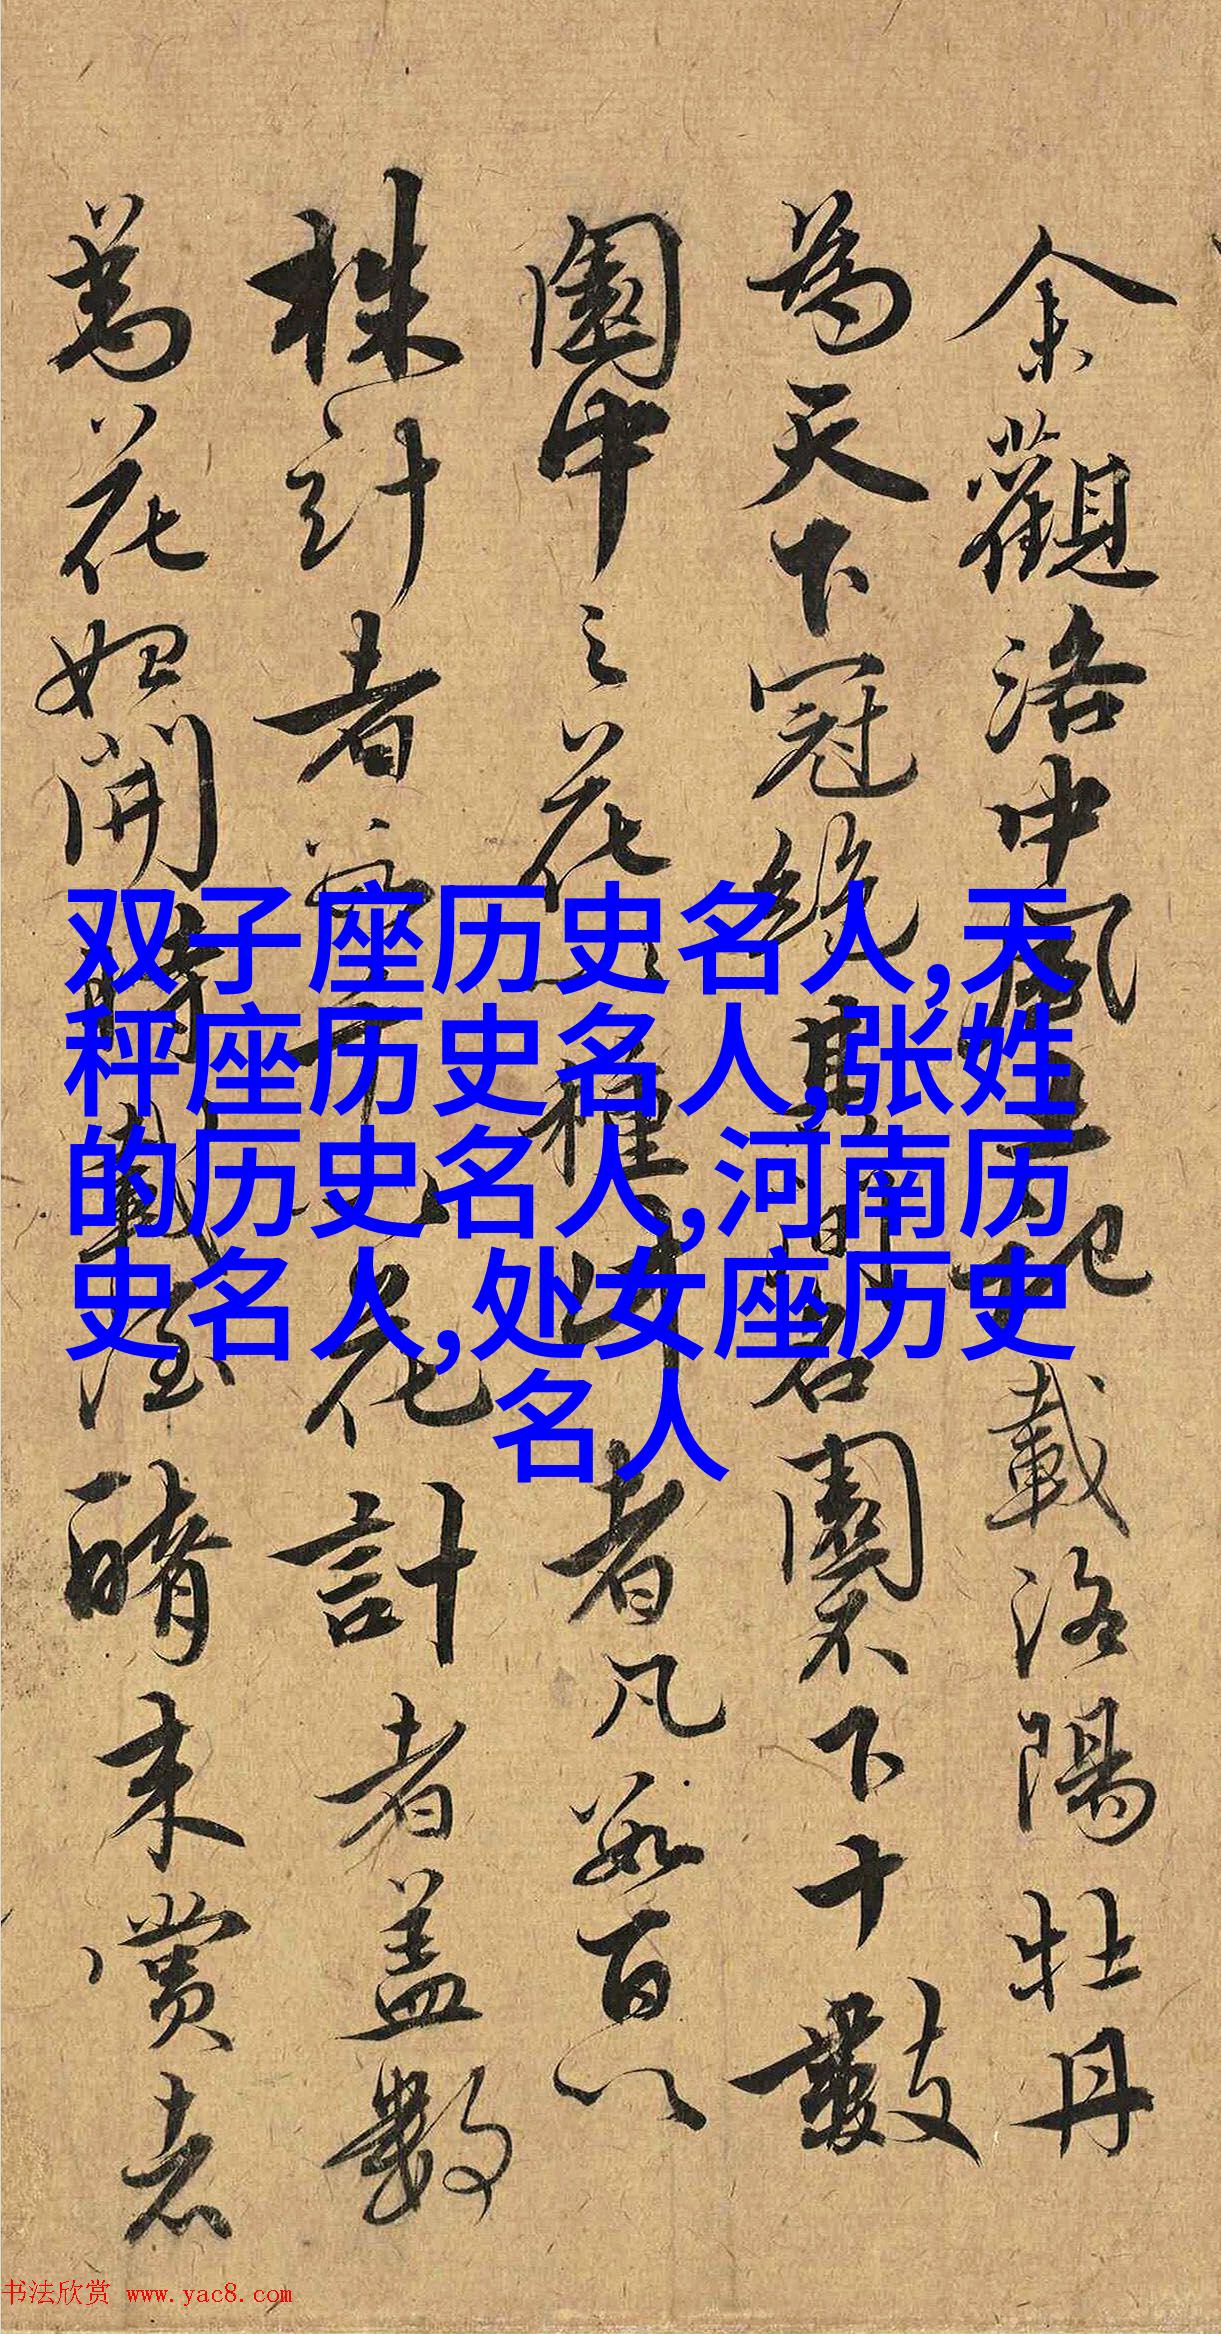 余觀洛中風土記載洛陽牡丹
為天下冠絕其間名園不下十數
園中之花種者凡數百以
株計者花計者蓋數
萬花始開時載來賞者
双子座历史名人,天
秤座历史名人,张姓
的历史名人,河南历
史名人,处女座历史
名人
书法欣赏 www.yac8.com